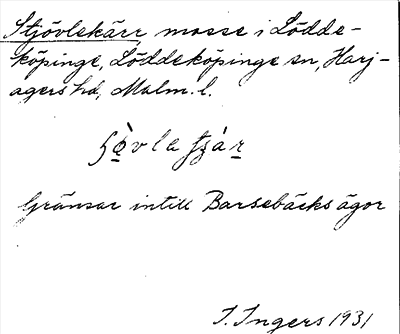 Stjövlekärr mosse i Lödde-
köpinge, Löddeköpinge sn, Harj-
agers hd, Malm. l.
Gränsar intill Barsebäcks ägor
I. Ingers 1931